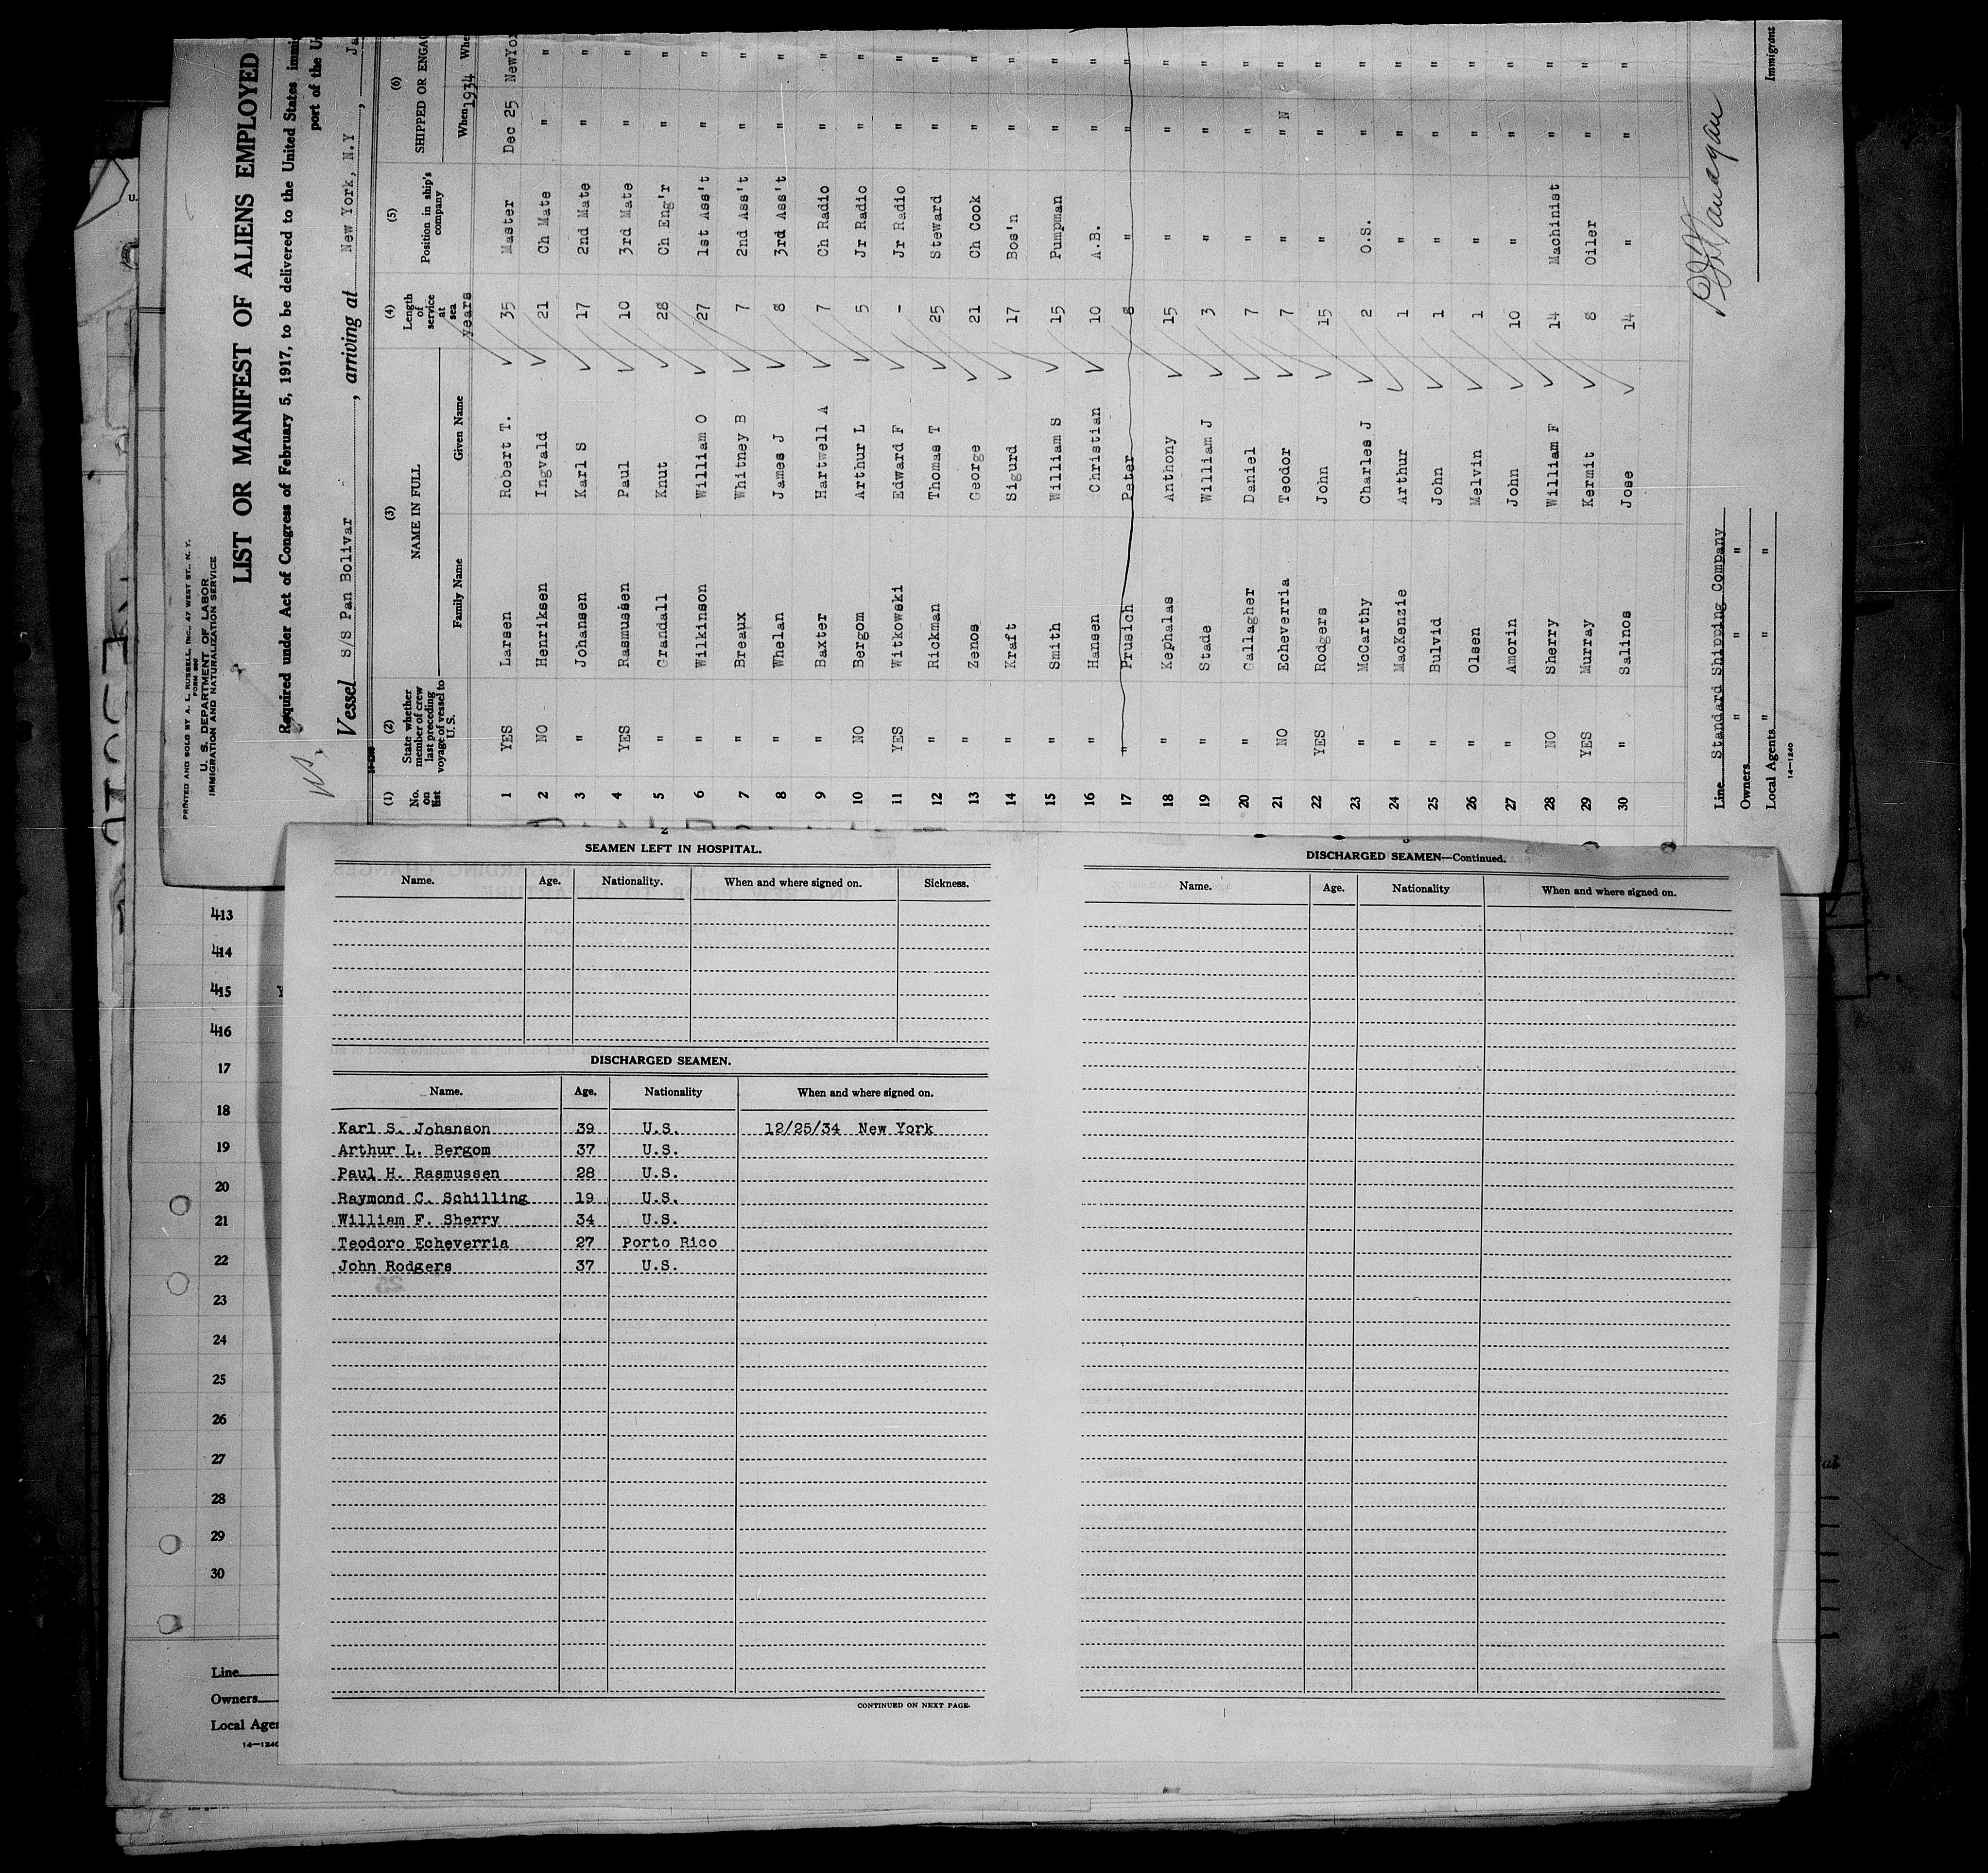 PRINTED AND SOLD BY A. L. RUSSELL, INC., 47 WEST ST., N. Y.
FORM 680
U. S. DEPARTMENT OF LABOR
IMMIGRATION AND NATURALIZATION SERVICE
LIST OR MANIFEST OF ALIENS EMPLOYED
Required under Act of Congress of February 5, 1917, to be delivered to the United States immi
port of the U
Vessel S/S Pan Bolivar, arriving at New York, N.Y, Ja
(1) (2) (3) (4) (5) (6)
No. on list
State whether member of crew last preceding voyage of vessel to U. S.
NAME IN FULL
Family Name Given Name
Length of service at sea years
Position in ship's company
SHIPPED OR ENGAG
When 1934 Whe
1 YES Larsen Robert T. 35 Master Dec 25 NewYor
2 NO Henriksen Ingvald 21 Ch Mate " "
3 " Johansen Karl S 17 2nd Mate " "
4 YES Rasmussen Paul 10 3rd Mate " "
5 " Grandall Knut 28 Ch Eng'r " "
6 " Wilkinson William O 27 1st Ass't " "
7 " Breaux Whitney B 7 2nd Ass't " "
8 " Whelan James J 8 3rd Ass't " "
9 " Baxter Hartwell A 7 Ch Radio " "
10 NO Bergom Arthur L 5 Jr Radio " "
11 YES Witkowski Edward F - Jr Radio " "
12 " Rickman Thomas T 25 Steward " "
13 " Zenos George 21 Ch Cook " "
14 " Kraft Sigurd 17 Bos'n " "
15 " Smith William S 15 Pumpman " "
16 " Hansen Christian 10 A.B. " "
17 " Prusich Peter 8 " " "
18 " Kephalas Anthony 15 " " "
19 " Stade William J 3 " " "
20 " Gallagher Daniel 7 " " "
21 NO Echeverria Teodor 7 " " N "
22 YES Rodgers John 15 " " "
23 " McCarthy Charles J 2 O.S. " "
24 " MacKenzie Arthur 1 " " "
25 " Bulvid John 1 " " "
26 " Olsen Melvin 1 " " "
27 " Amorin John 10 " " "
28 NO Sherry William F 14 Machinist " "
29 YES Murray Kermit 8 Oiler " "
30 " Salinos Jose 14 " " "
Line Standard Shipping Company
Owners " " "
Local Agents " " "
14-1240
Immigrant
SEAMEN LEFT IN HOSPITAL.
Name. Age. Nationality. When and where signed on. Sickness.
DISCHARGED SEAMEN.
Name. Age. Nationality When and where signed on.
Karl S. Johanson 39 U.S. 12/25/34 New York
Arthur L. Bergom 37 U.S.
Paul H. Rasmussen 28 U.S.
Raymond C. Schilling 19 U.S.
William F. Sherry 34 U.S.
Teodoro Echeverria 27 Porto Rico
John Rodgers 37 U.S.
CONTINUED ON NEXT PAGE.
DISCHARGED SEAMEN—Continued.
Name. Age. Nationality When and where signed on.
413
414
415
416
17
18
19
20
21
22
23
24
25
26
27
28
29
30
Line
Owners
Local Age
14-1240